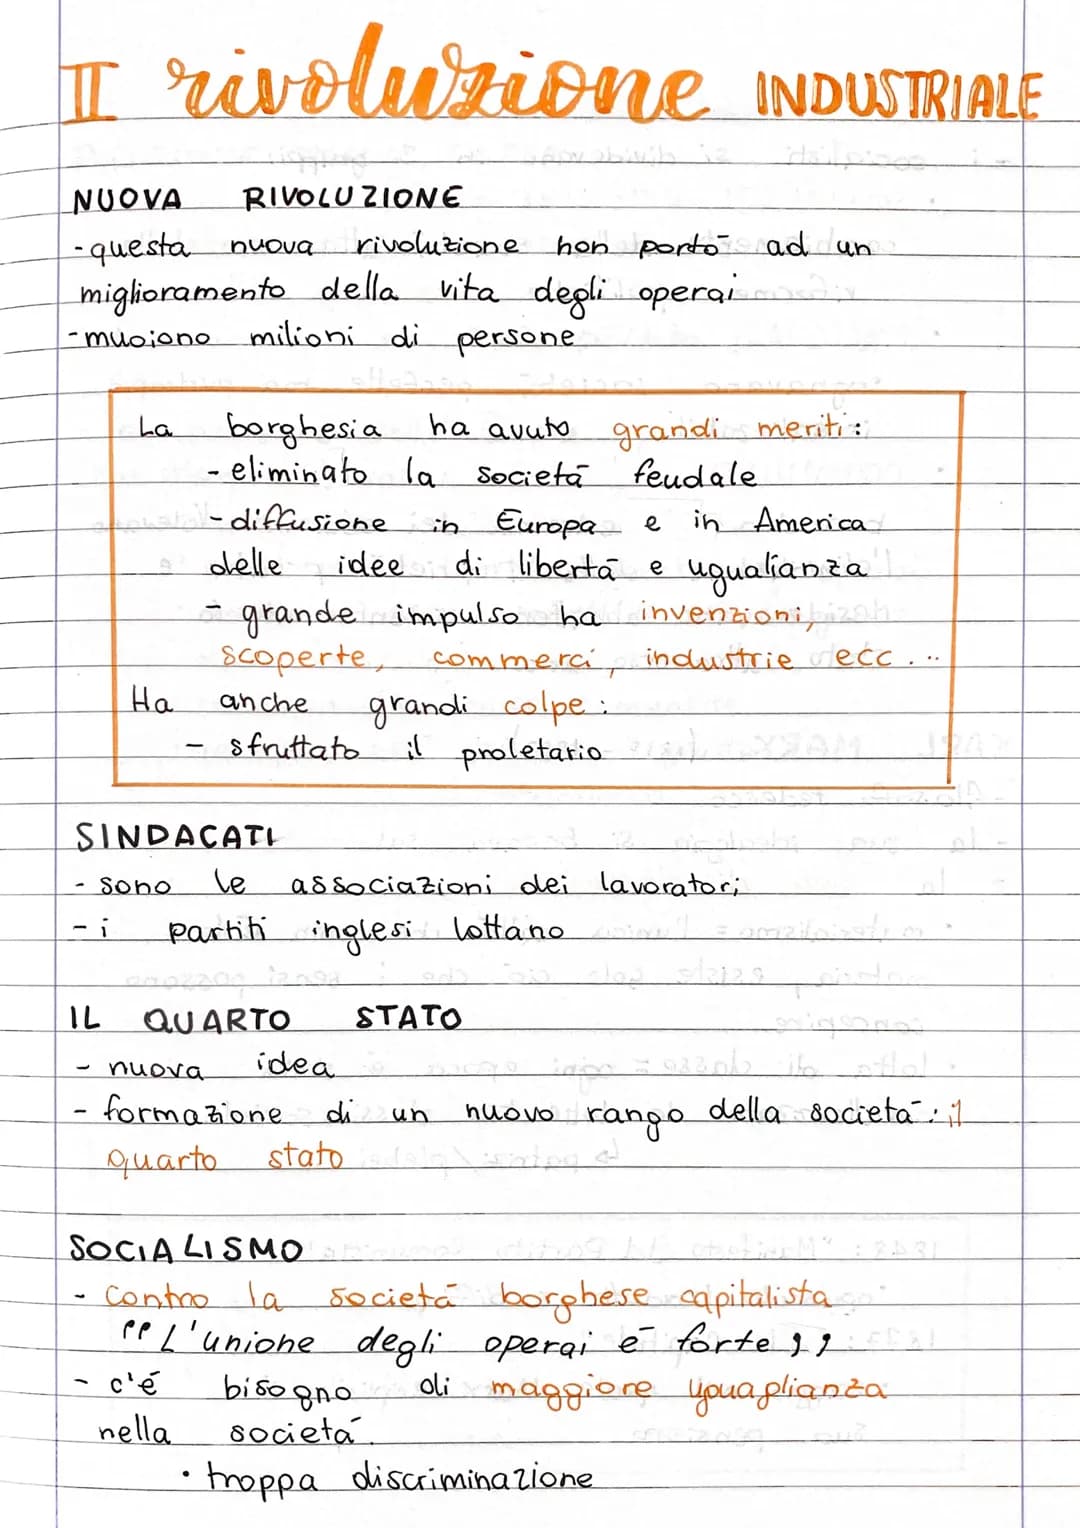 II rivoluzione INDUSTRIALE
NUOVA RIVOLUZIONE
- questa nuova rivoluzione non portò ad un
miglioramento della vita degli operai
- muoiono milioni di persone
La borghesia ha avuto grandi meriti:
- eliminato la società feudale
- diffusione in Europa e in America
delle idee di libertà e ugualianza
- grande impulso ha invenzioni,
scoperte, commerci, industrie ecc...
Ha anche grandi colpe:
- sfruttato il proletario
SINDACATI
- sono le associazioni dei lavoratori
- i partiti inglesi lottano
IL QUARTO STATO
- nuova idea
- formazione di un nuovo rango della società: il
quarto stato
SOCIALISMO
- contro la società borghese capitalista
"L'unione degli operai è forte"
- c'é bisogno di maggiore
nella società.
• troppa discriminazione